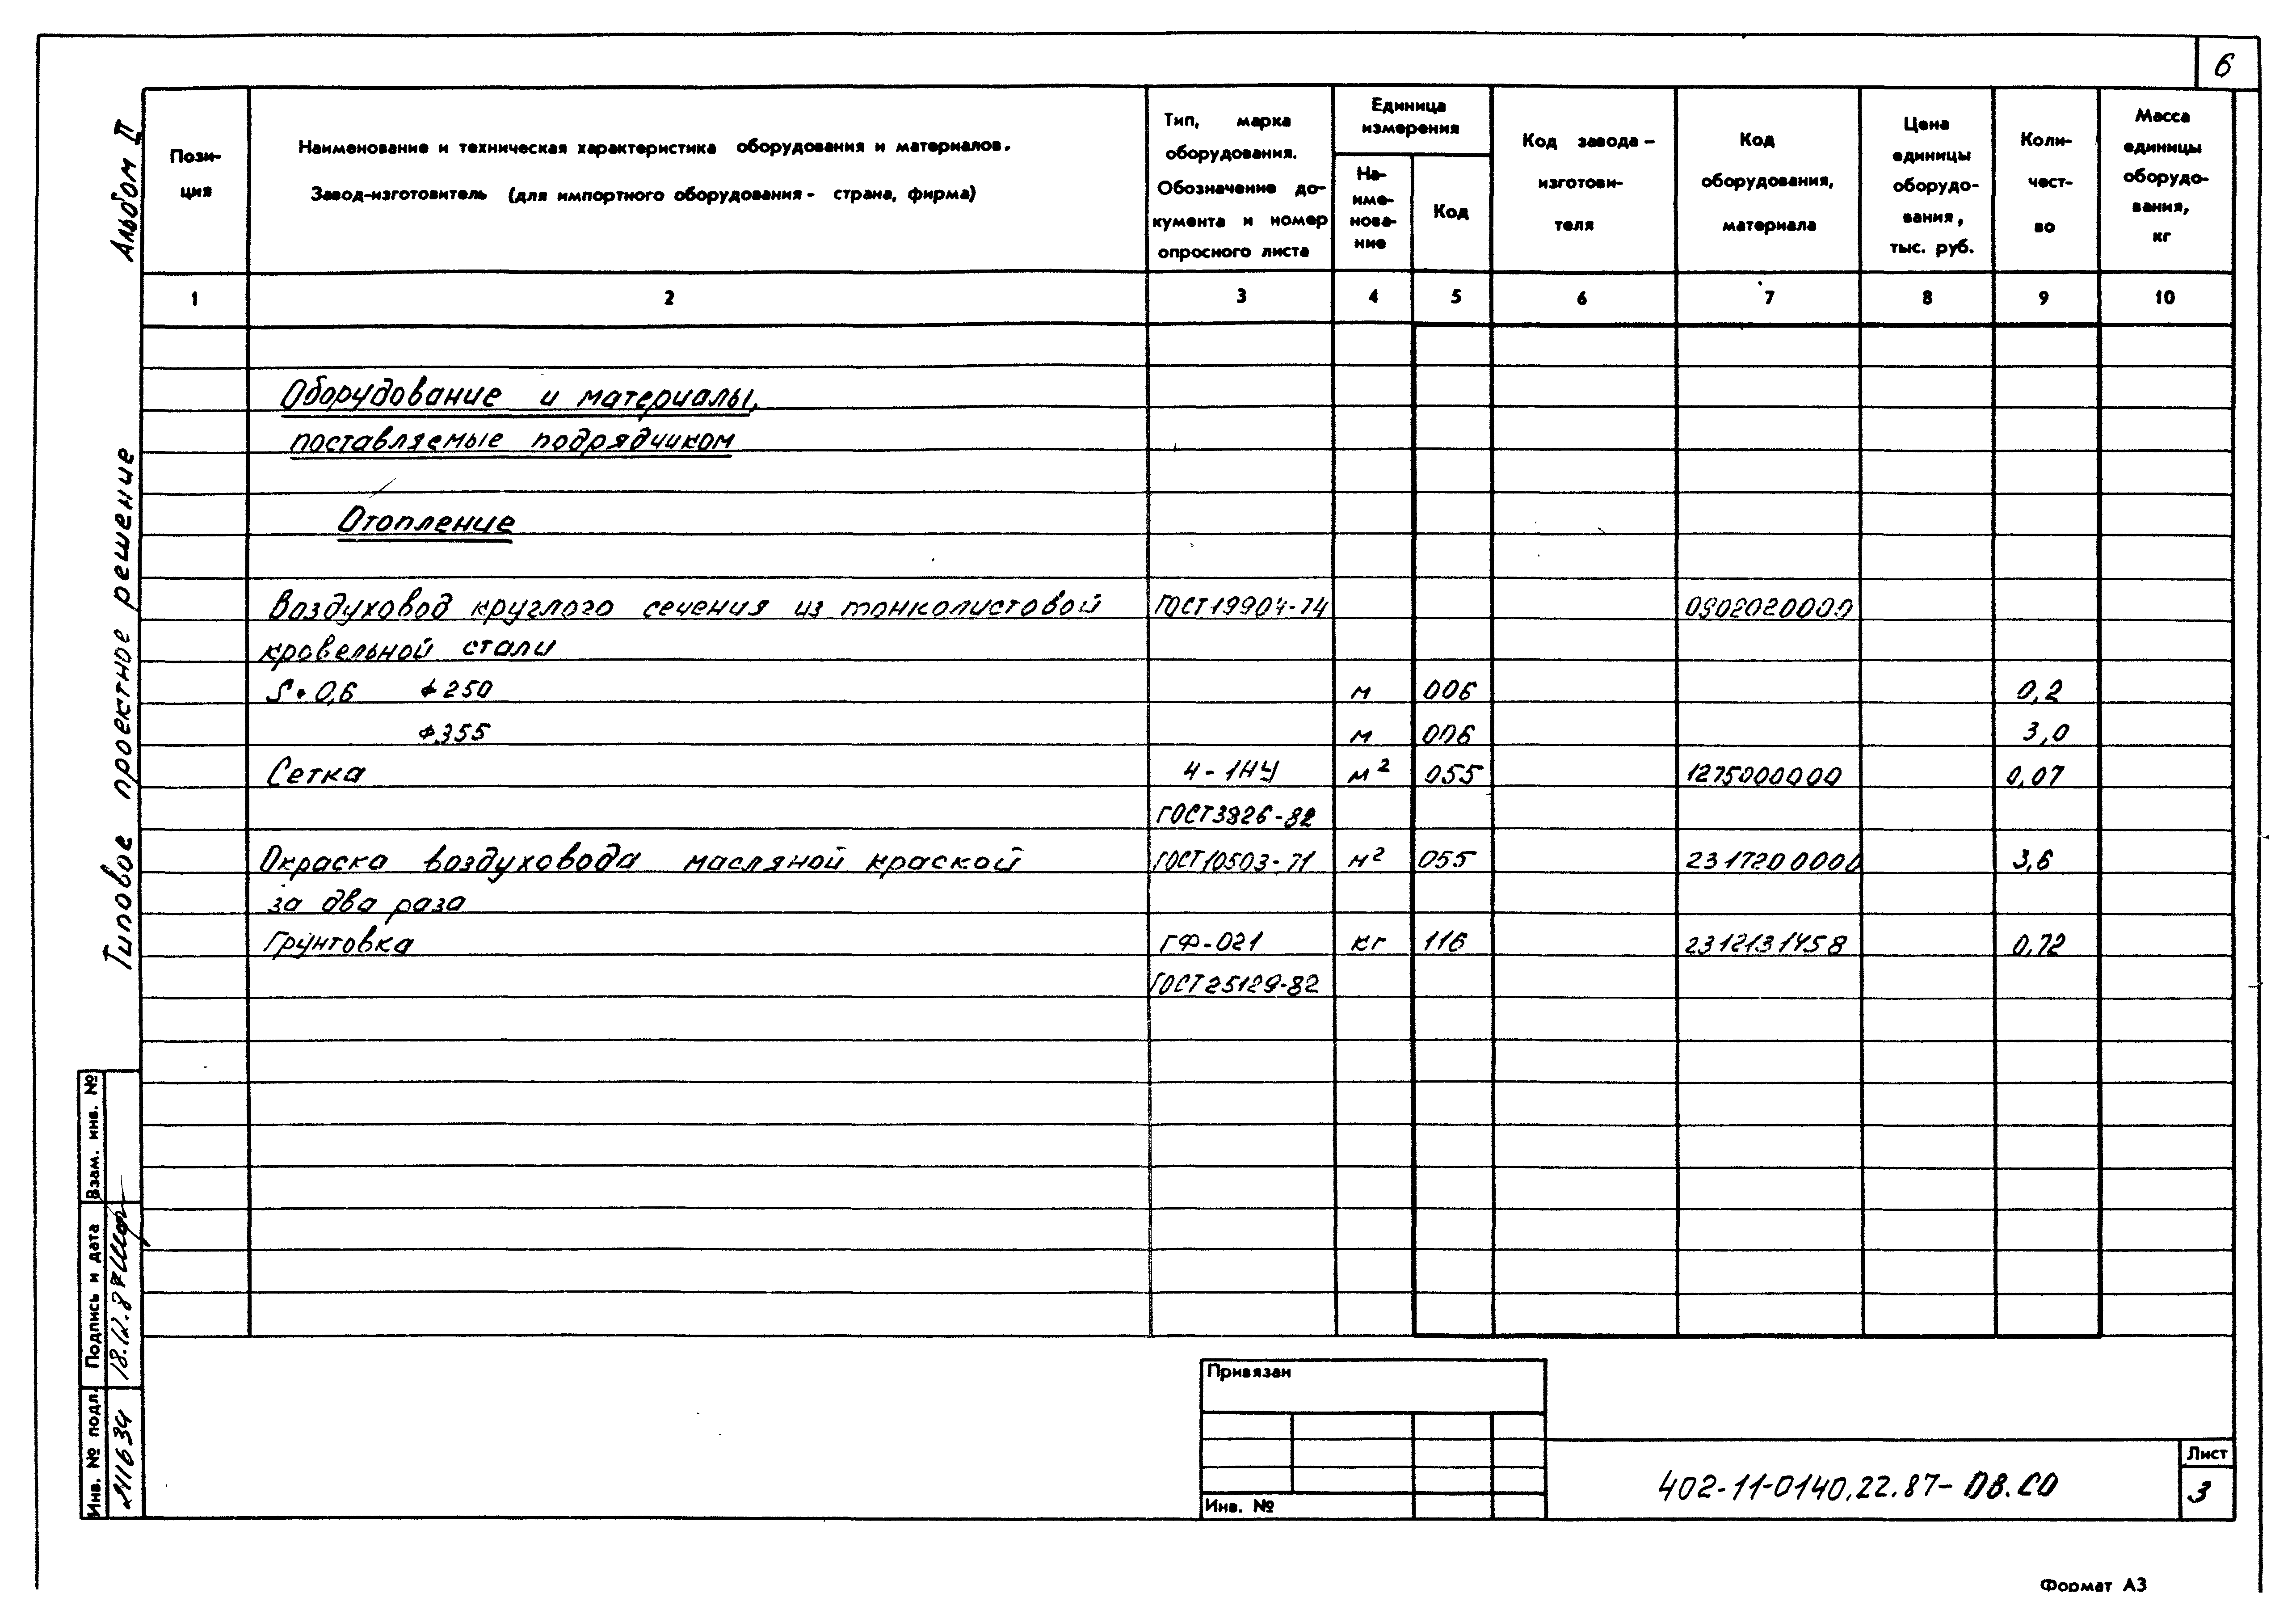 6
Альбом II
Типовое проектное решение
Пози-
ция
Наименование и техническая характеристика оборудования и материалов.
Завод-изготовитель (для импортного оборудования - страна, фирма)
Тип, марка
оборудования.
Обозначение до-
кумента и номер
опросного листа
Единица
измерения
На-
име-
нова-
ние
Код
Код завода -
изготови-
теля
Код
оборудования,
материала
Цена
единицы
оборудо-
вания,
тыс. руб.
Коли-
чест-
во
Масса
единицы
оборудо-
вания,
кг
1 2 3 4 5 6 7 8 9 10
Оборудование и материалы,
поставляемые подрядчиком
Отопление
Воздуховод круглого сечения из тонколистовой ГОСТ19904-74 0902020000
кровельной стали
S=0,6 ф250 м 006 0,2
ф355 м 006 3,0
Сетка 4-1НУ м² 055 1275000000 0,07
ГОСТ3826-82
Окраска воздуховода масляной краской ГОСТ10503-71 м² 055 2317200000 3,6
за два раза
Грунтовка ГФ-021 кг 116 2312131458 0,72
ГОСТ25129-82
Взам. инв. №
Подпись и дата
18.12.87
Инв. № подл.
Привязан
Инв. №
402-11-0140.22.87-ОВ.СО
Лист
3
Формат А3